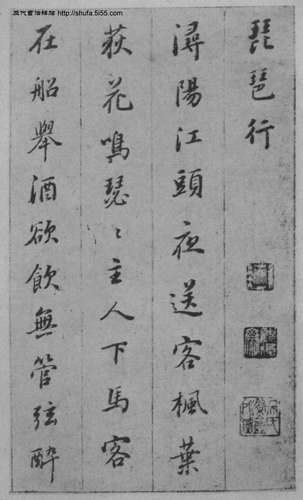 http://shufa.5i55.com
琵琶行
潯陽江頭夜送客楓葉
荻花鳴瑟〻主人下馬客
在船舉酒欲飲無管弦醉